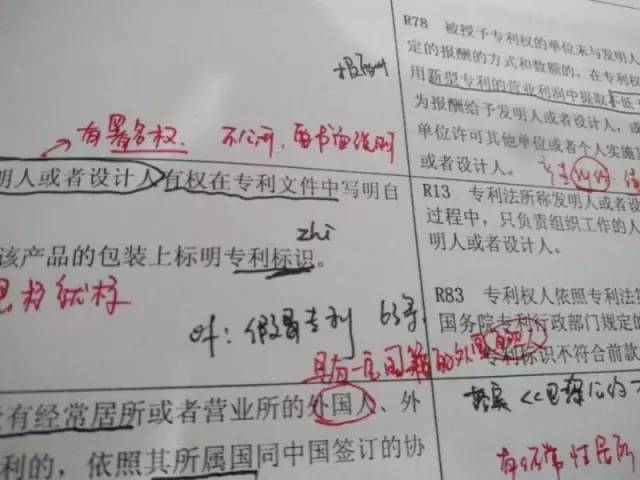 有署名权 不公开,要书面说明
明人或者设计人有权在专利文件中写明自
zhi
该产品的包装上标明专利标识。
假冒专利 63条
具有一定国籍的外国人
有经常居所或者营业所的外国人、外
利的,依照其所属国同中国签订的协
R78 被授予专利权的单位未与发明人
定的报酬的方式和数额的,在专利权
用新型专利的营业利润中提取不低
为报酬给予发明人或者设计人,或
单位许可其他单位或者个人实施
或者设计人。
R13 专利法所称发明人或者设
过程中,只负责组织工作的人
明人或者设计人。
R83 专利权人依照专利法第
国务院专利行政部门规定的
专利标识不符合前款
有经常性居所